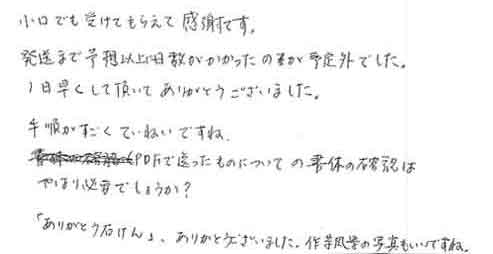 小口でも受けてもらえて感謝です。
発送まで予想以上に日数がかかったのが予定外でした。
1日早くして頂いてありがとうございました。
手順がすごくていねいですね。
PDFで送ったものについての書体の確認は
やはり必要でしょうか?
「ありがとう石けん」、ありがとうございました。作業風景の写真もいいですね。